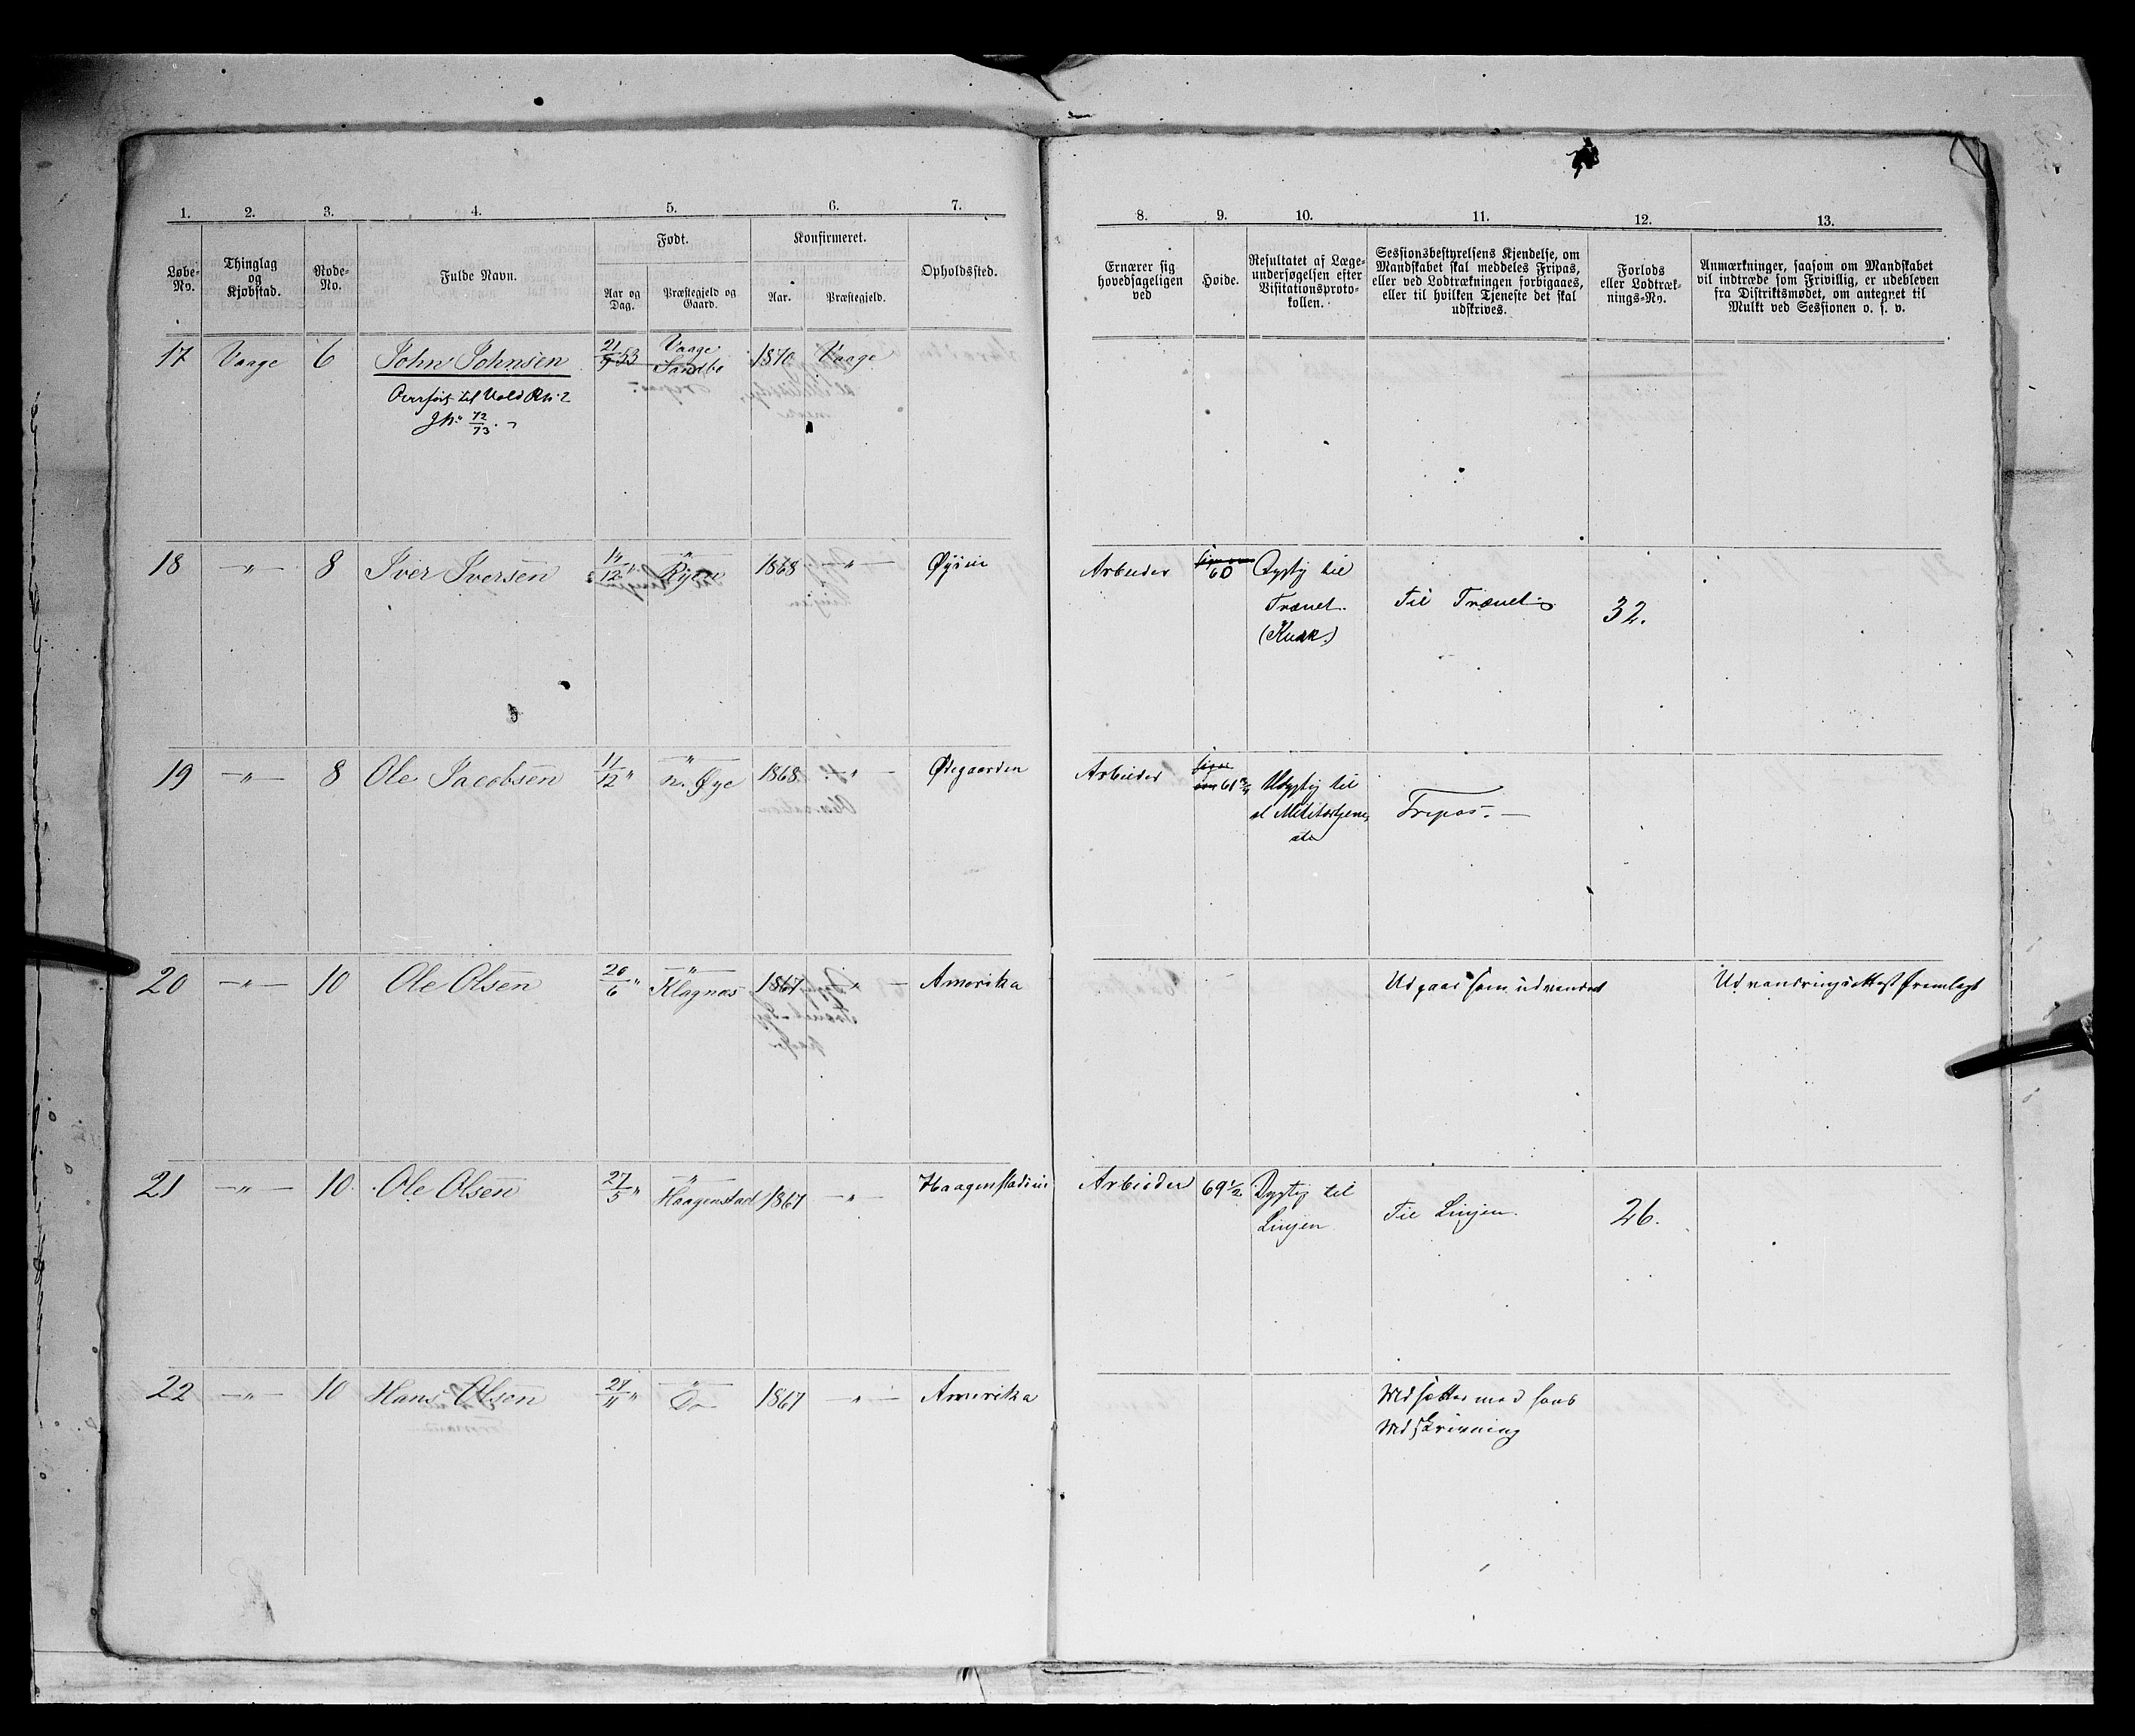 1. 2. 3. 4. 5. 6. 7. 8. 9. 10. 11. 12. 13.
Løbe-No.
Thinglag og Kjøbstad.
Rode-No.
Fulde Navn.
Født.
Aar og Dag.
Præstegjeld og Gaard.
Konfirmeret.
Aar.
Præstegjeld.
Opholdssted.
Ernærer sig hovedsageligen ved
Høide.
Resultatet af Læge-undersøgelsen efter Visitationsproto-kollen.
Sessionsbestyrelsens Kjendelse, om Mandskabet skal meddeles Fripas, eller ved Lodtrækningen forbigaaes, eller til hvilken Tjeneste det skal udskrives.
Forlods eller Lodtræk-nings-No.
Anmærkninger, saasom om Mandskabet vil indtræde som Frivillig, er udebleven fra Distriktsmødet, om antegnet til Mulkt ved Sessionen o. s. v.
17 Vaage 6 John Johnsen 21/9 53 Vaage Sandbo 1870 Vaage
Overført til Vold
72/73.
18 —"— 8 Iver Iversen 14/12 " —"— 1868 —"— Øyein Arbeider 60 Dygtig til
Trænet. Til Trænet 32.
(Kusk.)
19 —"— 8 Ole Jacobsen 11/12 " —"— n. Øye 1868 —"— Ødegaarden Arbeider 61 3/4 Udygtig til
al Militærtjene-
ste Fripas. —
20 —"— 10 Ole Olsen 20/6 " —"— Klagnæs 1867 —"— Amerika Udgaar som udvandret Udvandringsattest fremlagt
21 —"— 10 Ole Olsen 27/5 " —"— Haagenstad 1867 —"— Haagenstadeie Arbeider 69 1/2 Dygtig til
Linjen Til Linjen. 26.
22 —"— 10 Hans Olsen 27/11 " —"— Do 1867 —"— Amerika Udsættes med hans
Udskrivning